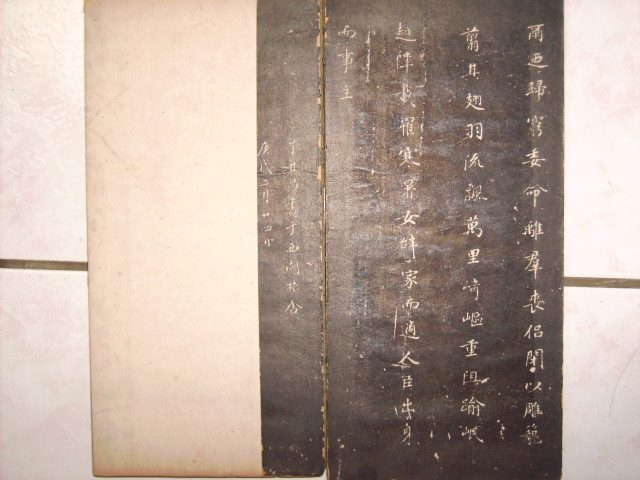 爾迺歸窮委命離羣喪侶閉以雕籠
翦其翅羽流飄萬里崎嶇重阻踰岷
越障載罹寒暑女辭家而適人臣出身
而事主
西湖旅舍
二月廿四日